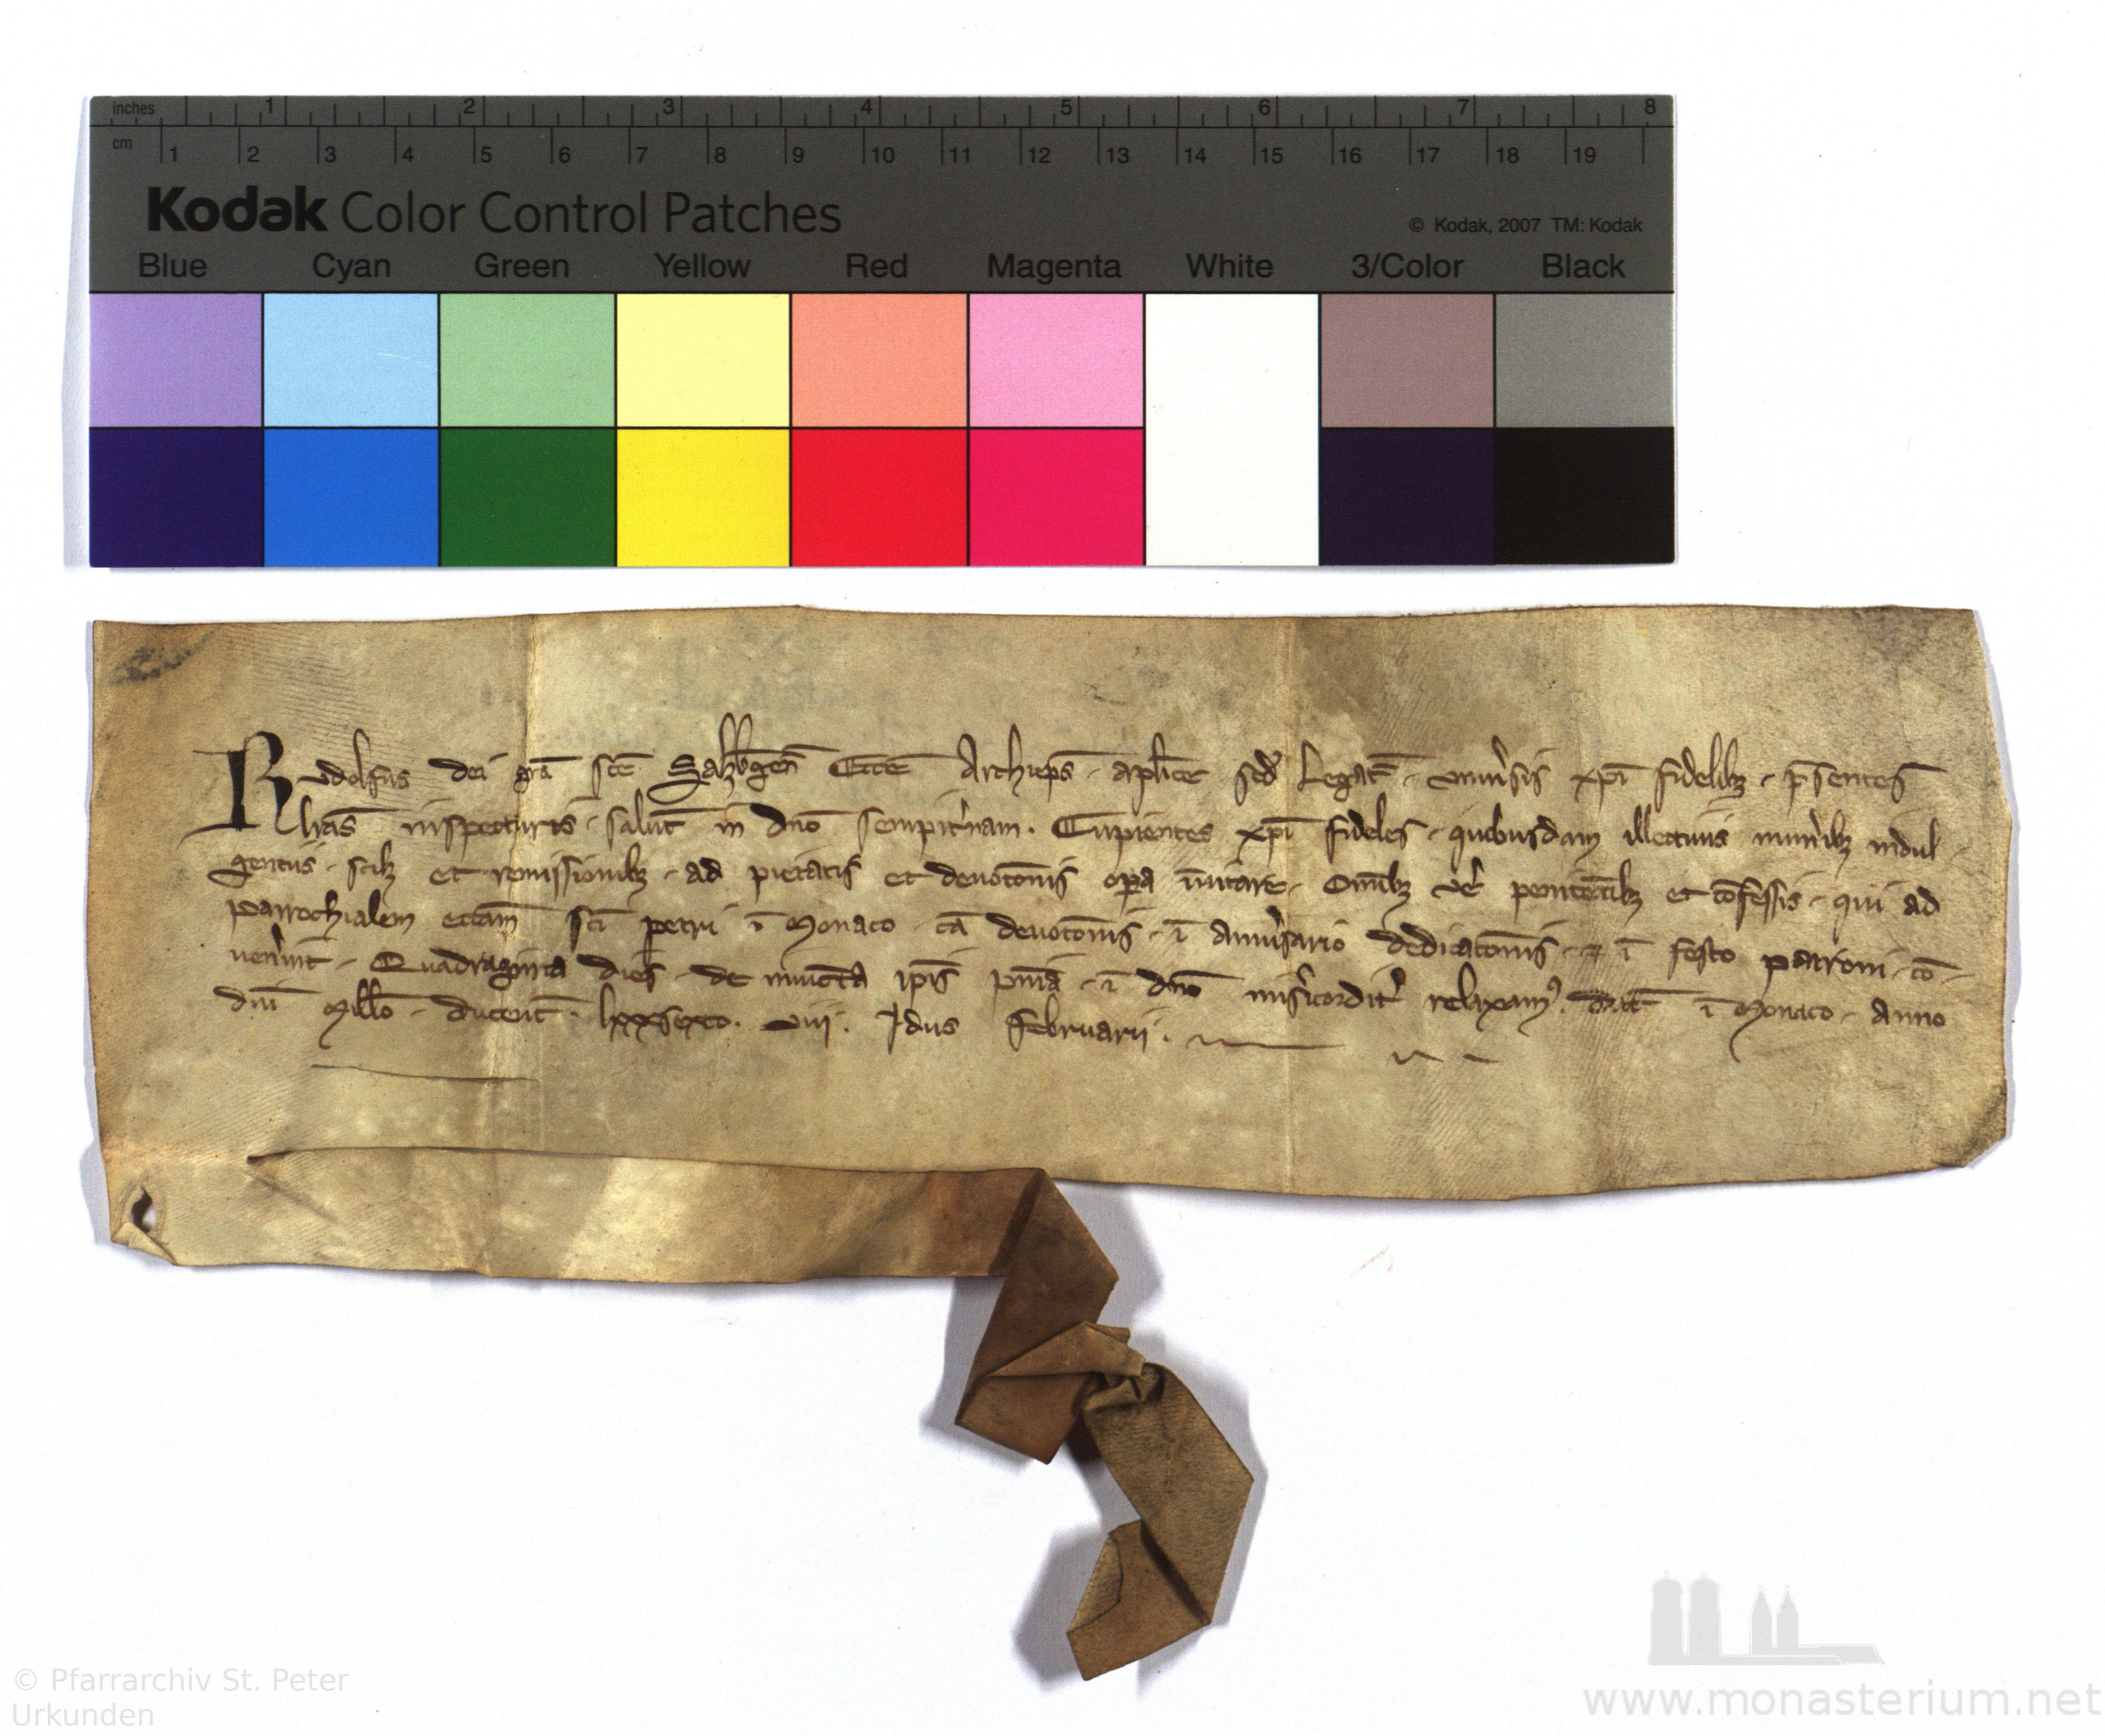 inches 1 2 3 4 5 6 7 8
cm 1 2 3 4 5 6 7 8 9 10 11 12 13 14 15 16 17 18 19
Kodak Color Control Patches
© Kodak, 2007 TM: Kodak
Blue Cyan Green Yellow Red Magenta White 3/Color Black
Rvdolfus dei gr̄a sc̄e Salzb̄gen̄ Ecc̄e Archiep̄s · apl̄ice sed̾ Legat̄ · vniu̾sis xp̄i fidelibꝫ · p̄sentes
lr̄as inspecturis · salut̄ in dn̄o sempit̾nam · Cupientes xp̄i fideles · quibusdam illectiuis mun̾ibꝫ indul-
gentiis · scilꝫ et remissionibꝫ · ad pietatis et deuoto̅nis op̄a īuitare · Omībꝫ ve̾ penitētibꝫ et cōfessis · qui ad
parrochialem ecc̄am sc̄i petri ī Monaco cā deuoto̅nis · ī anniu̾sario dedicato̅nis · ⁊ ī festo patroni · cō-
uen̾int · Quadraginta dies · de iniūcta ip̄is pn̄ia · ī dn̄o mis̾icordit̾ relaxamꝰ. Dat̄ ī Monaco · anno
dn̄i Mill̄o · ducent̄ · lxxsexto · viij · Idus Februarij ·
© Pfarrarchiv St. Peter
Urkunden
www.monasterium.net